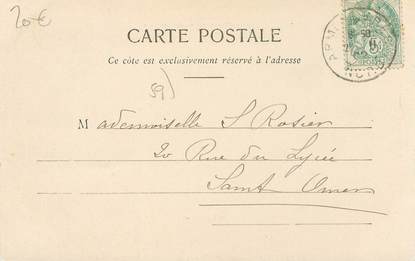 20€
CARTE POSTALE
Ce côte est exclusivement réservé à l'adresse
59)
Mademoiselle S Rosier
20 Rue du Lycée
Saint Omer